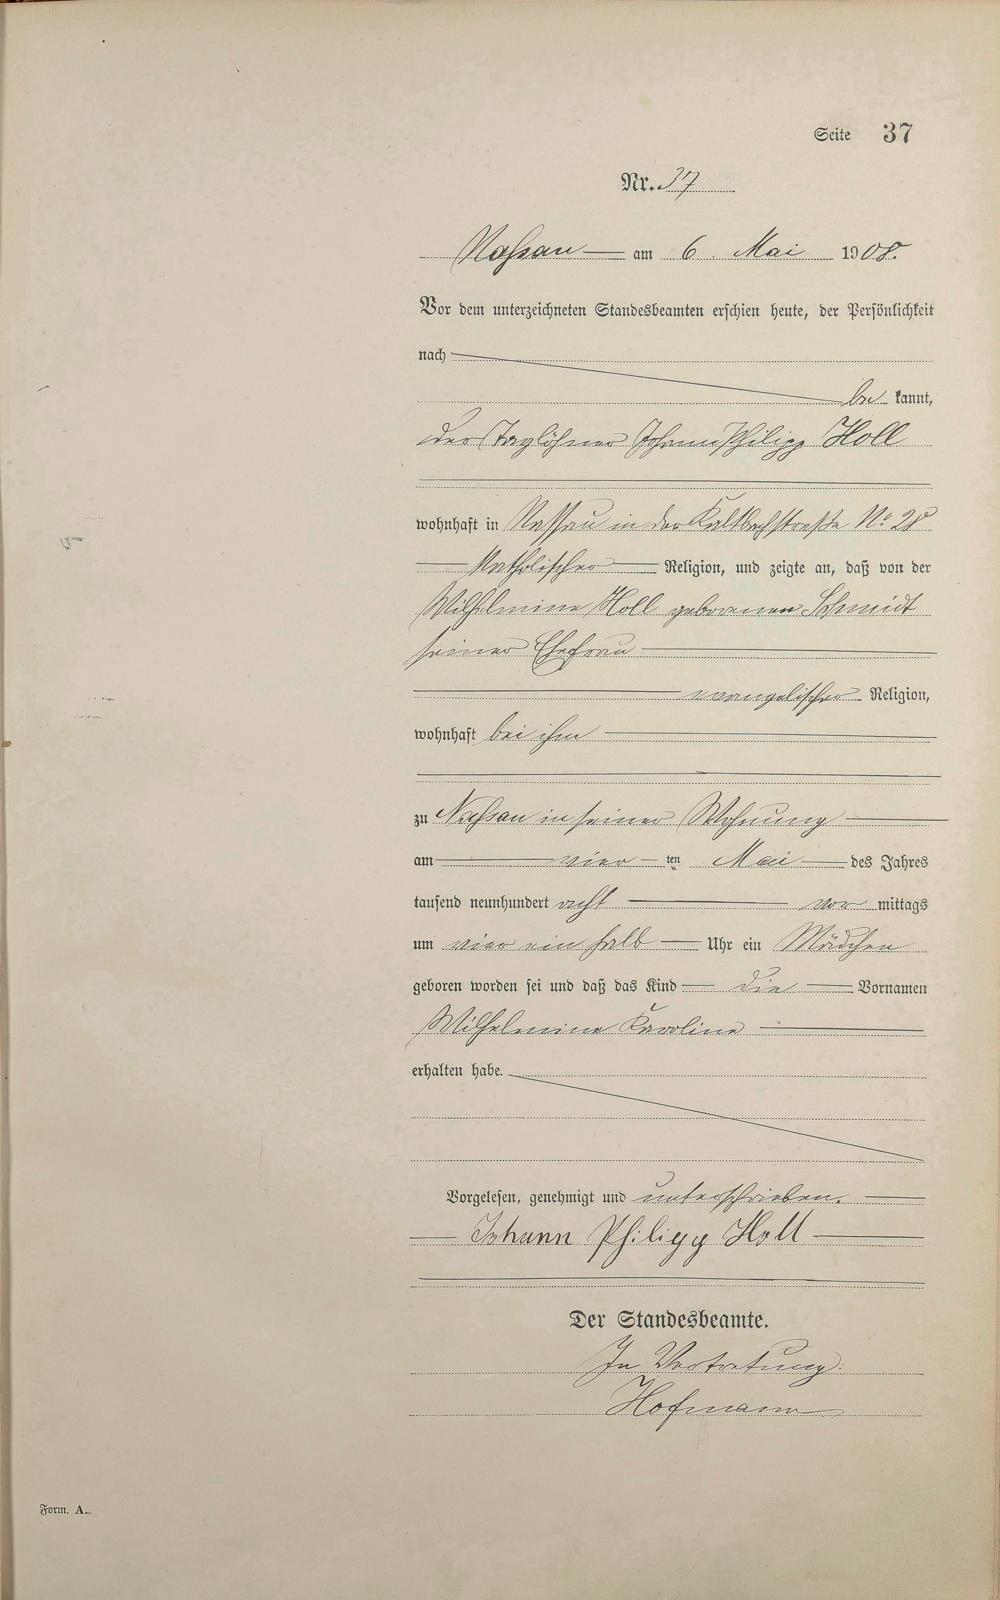 Seite 37
Nr. 37
Nassau am 6. Mai 1908.
Vor dem unterzeichneten Standesbeamten erschien heute, der Persönlichkeit
nach
be kannt,
der Taglöhner Johann Philipp Holl
wohnhaft in Nassau in der Kaltbachstraße No 28
katholischer Religion, und zeigte an, daß von der
Wilhelmine Holl geborenen Schmidt
seiner Ehefrau
evangelischer Religion,
wohnhaft bei ihm
zu Nassau in seiner Wohnung
am vier ten Mai des Jahres
tausend neunhundert acht vor mittags
um vier ein halb Uhr ein Mädchen
geboren worden sei und daß das Kind die Vornamen
Wilhelmine Karoline
erhalten habe.
Vorgelesen, genehmigt und unterschrieben.
Johann Philipp Holl
Der Standesbeamte.
In Vertretung:
Hofmann
Form. A.